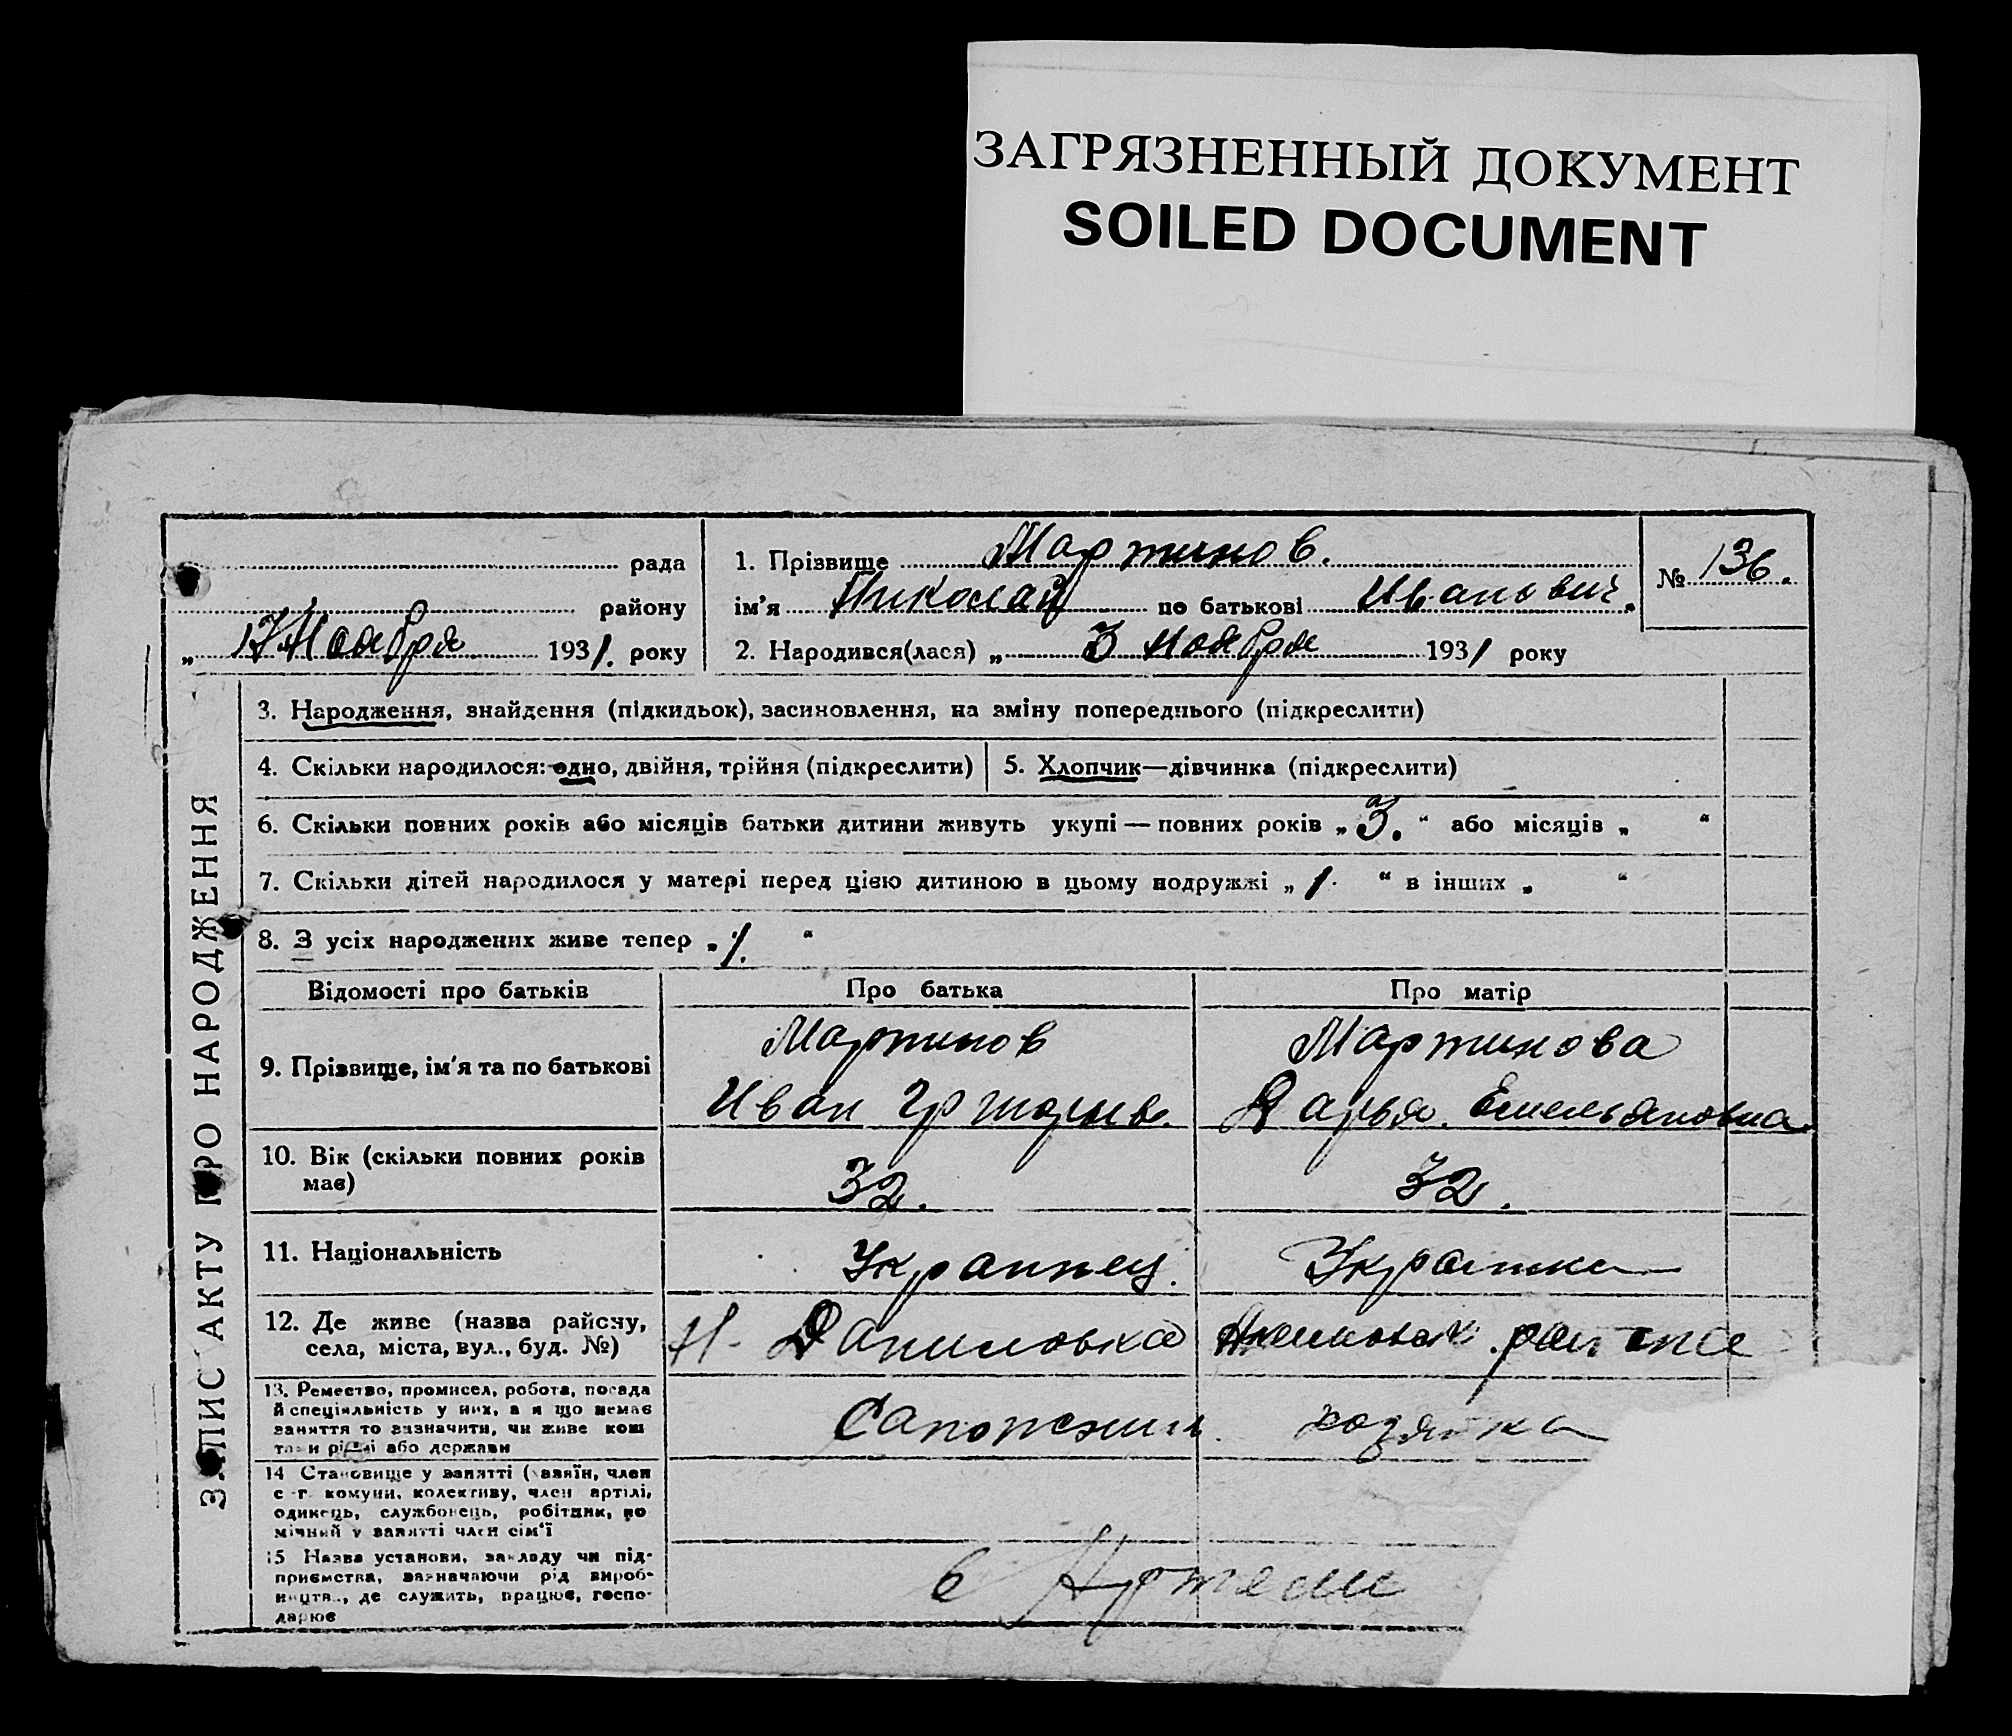 ЗАГРЯЗНЕННЫЙ ДОКУМЕНТ
SOILED DOCUMENT
рада
району
„ 17 Ноября 1931. року
1. Прізвище Мартинов.
ім'я Николай по батькові Иванович.
2. Народився(лася) „ 3 ноября 1931 року
№ 136.
ЗАПИС АКТУ ПРО НАРОДЖЕННЯ
3. Народження, знайдення (підкидьок), засиновлення, на зміну попереднього (підкреслити)
4. Скільки народилося: одно, двійня, трійня (підкреслити)
5. Хлопчик—дівчинка (підкреслити)
6. Скільки повних років або місяців батьки дитини живуть укупі — повних років „ 3. “ або місяців „ “
7. Скільки дітей народилося у матері перед цією дитиною в цьому подружжі „ 1. “ в інших „ “
8. З усіх народжених живе тепер „ 1. “
Відомості про батьків
Про батька
Про матір
9. Прізвище, ім'я та по батькові
Мартинов
Иван
Мартинова
Дарья Емельяновна
10. Вік (скільки повних років
має)
32.
32.
11. Національність
Украинец.
Украинка
12. Де живе (назва району,
села, міста, вул., буд. №)
Н-Даниловка
13. Ремество, промисел, робота, посада
й спеціяльність у них, а я що немає
заняття то зазначити, чи живе кош
тами рідні або держави
хозяйка
14 Становище у занятті (хазяїн, член
с-г. комуни, колективу, член артілі,
одинець, службовець, робітник, по
мічний у занятті член сім'ї
15 Назва установи, закладу чи під-
приємства, зазначаючи рід вироб-
ництва, де служить, працює, госпо-
дарює
в Артели